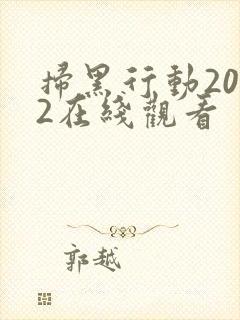 掃黑行動20
2在綫觀看
郭越